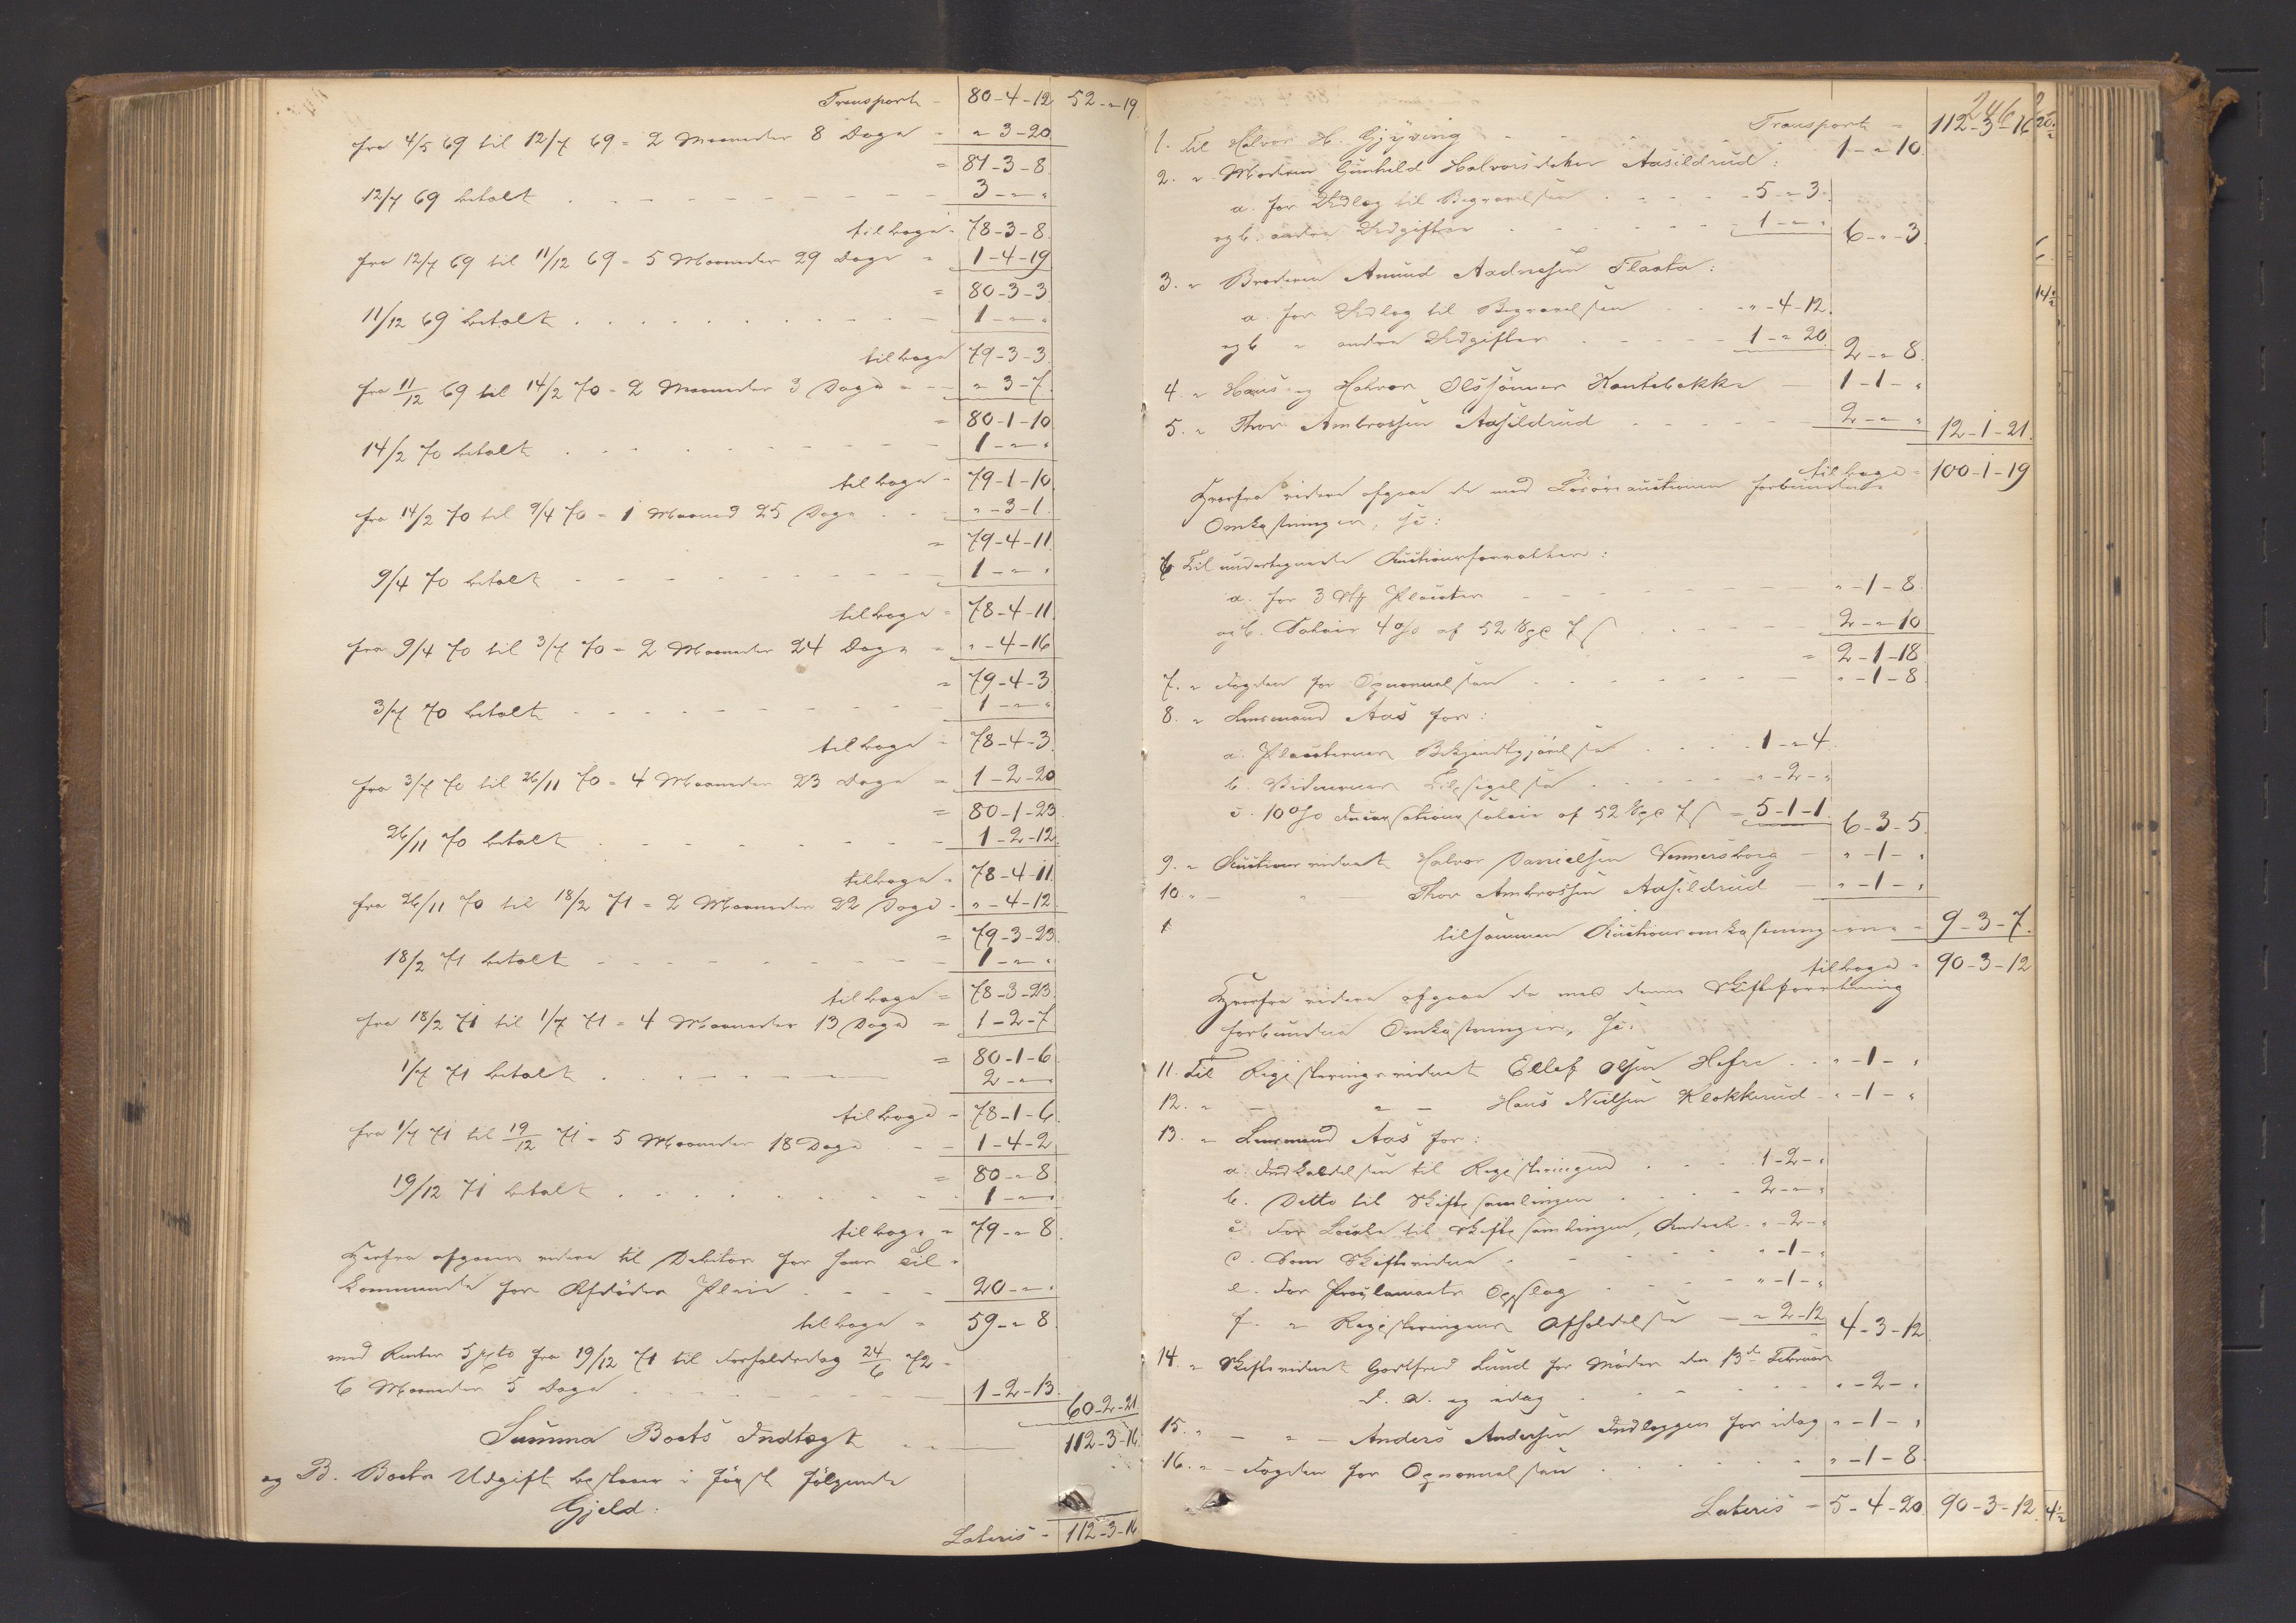 Transport - 80-4-12 52-"-19
fra 4/5 69 til 12/7 69 = 2 Maaneder 8 Dage - " 3-20
= 81-3-8
12/7 69 betalt 3-"-"
tilbage - 78-3-8
fra 12/7 69 til 11/12 69 = 5 Maaneder 29 Dage = 1-4-19
= 80-3-3
11/12 69 betalt 1-"-"
tilbage 79-3-3
fra 11/12 69 til 14/2 70 = 2 Maaneder 3 Dage = " 3-7
= 80-1-10
14/2 70 betalt 1-"-"
tilbage - 79-1-10
fra 14/2 70 til 9/4 70 = 1 Maaned 25 Dage "-3-1
= 79-4-11
9/4 70 betalt 1-"-"
tilbage = 78-4-11
fra 9/4 70 til 3/7 70 = 2 Maaneder 24 Dage = "-4-16
= 79-4-3
3/7 70 betalt 1-"-"
tilbage = 78-4-3
fra 3/7 70 til 26/11 70 = 4 Maaneder 23 Dage = 1-2-20
= 80-1-23
26/11 70 betalt 1-2-12
tilbage - 78-4-11
fra 26/11 70 til 18/2 71 = 2 Maaneder 22 Dage - "-4-12
= 79-3-23
18/2 71 betalt 1-"-"
tilbage = 78-3-23
fra 18/2 71 til 1/7 71 = 4 Maaneder 13 Dage = 1-2-7
= 80-1-6
1/7 71 betalt 2-"-"
tilbage = 78-1-6
fra 1/7 71 til 19/12 71 = 5 Maaneder 18 Dage - 1-4-2
= 80-"-8
19/12 71 betalt 1-"-"
tilbage = 79-"-8
Herfra afgaar videre til Debitor for hans Til-
kommende for Afdødes Pleie 20-"-"
tilbage = 59-"-8
med Renter 5 pCto fra 19/12 71 til Forfaldsdag 24/6 72 =
6 Maaneder 5 Dage 1-2-13
60-2-21
Summa Boets Indtægt 112-3-16
og B. Boets Udgift bestaar i først følgende
Gjeld:
Lateris - 112-3-16
246
Transport = 112-3-16
1. Til Halvor H. Gjyving 1-"-10
2. " Moderen Gunhild Halvorsdatter Aasildrud:
a. for Udlæg til Begravelsen 5-"-3
og b. andre Udgifter 1-"-" 6-"-3
3. " Broderen Amund Aadnesen Flaata:
a. for Udlæg til Begravelsen "-4-12
og b " andre Udgifter 1-"-20 2-"-8
4. " Hans og Halvor Olssønner Kantebakke 1-1-"
5. " Thor Ambrossen Aasildrud 2-"-" 12-1-21
tilbage = 100-1-19
Hvorfra videre afgaae de med Løsøreauctionen forbundne
Omkostninger, så:
6 Til undertegnede Auctionsforvalter:
a. for 3 Stk Placater "-1-8
og b. Salair 4 % af 52 Spd 7 s 2-"-10
= 2-1-18
7. " Fogden for Opnævnelsen "-1-8
8. " Lensmand Aas for:
a. Placaternes Bekjendtgjørelse 1-"-4
b. Vidnernes Tilsigelse "-2-"
c. 10 % Incassationssalair af 52 Spd 7 s = 5-1-1 6-3-5
9. " Auctionsvidnet Halvor Danielsen Vennersborg "-1-"
10. " — " — Thor Ambrossen Aasildrud "-1-"
tilsammen Auctionsomkostningerne = 9-3-7
tilbage = 90-3-12
Hvorfra videre afgaae de med denne Skifteforretning
forbundne Omkostninger, så:
11. Til Registreringsvidnet Ellef Olsen Hefre "-1-"
12. " — " — Hans Nielsen Klokkerud "-1-"
13. " Lensmand Aas for:
a. Indkaldelsen til Registreringen 1-2-"
b. Ditto til Skiftesamlingen 2-"-"
c. For Locale til Skiftesamlingen, "-2-"
d. Som Skiftevidne "-1-"
e. For Proclamaets Opslag "-1-"
f. " Registreringens Afholdelse "-2-12 4-3-12
14. " Skiftevidnet Godtfred Lund for Møder den 13de Februar
d. A. og idag "-2-"
15. " — " — Anders Andersen Indlæggen for idag "-1-"
16. " Fogden for Opnævnelsen "-1-8
Lateris = 5-4-20 90-3-12